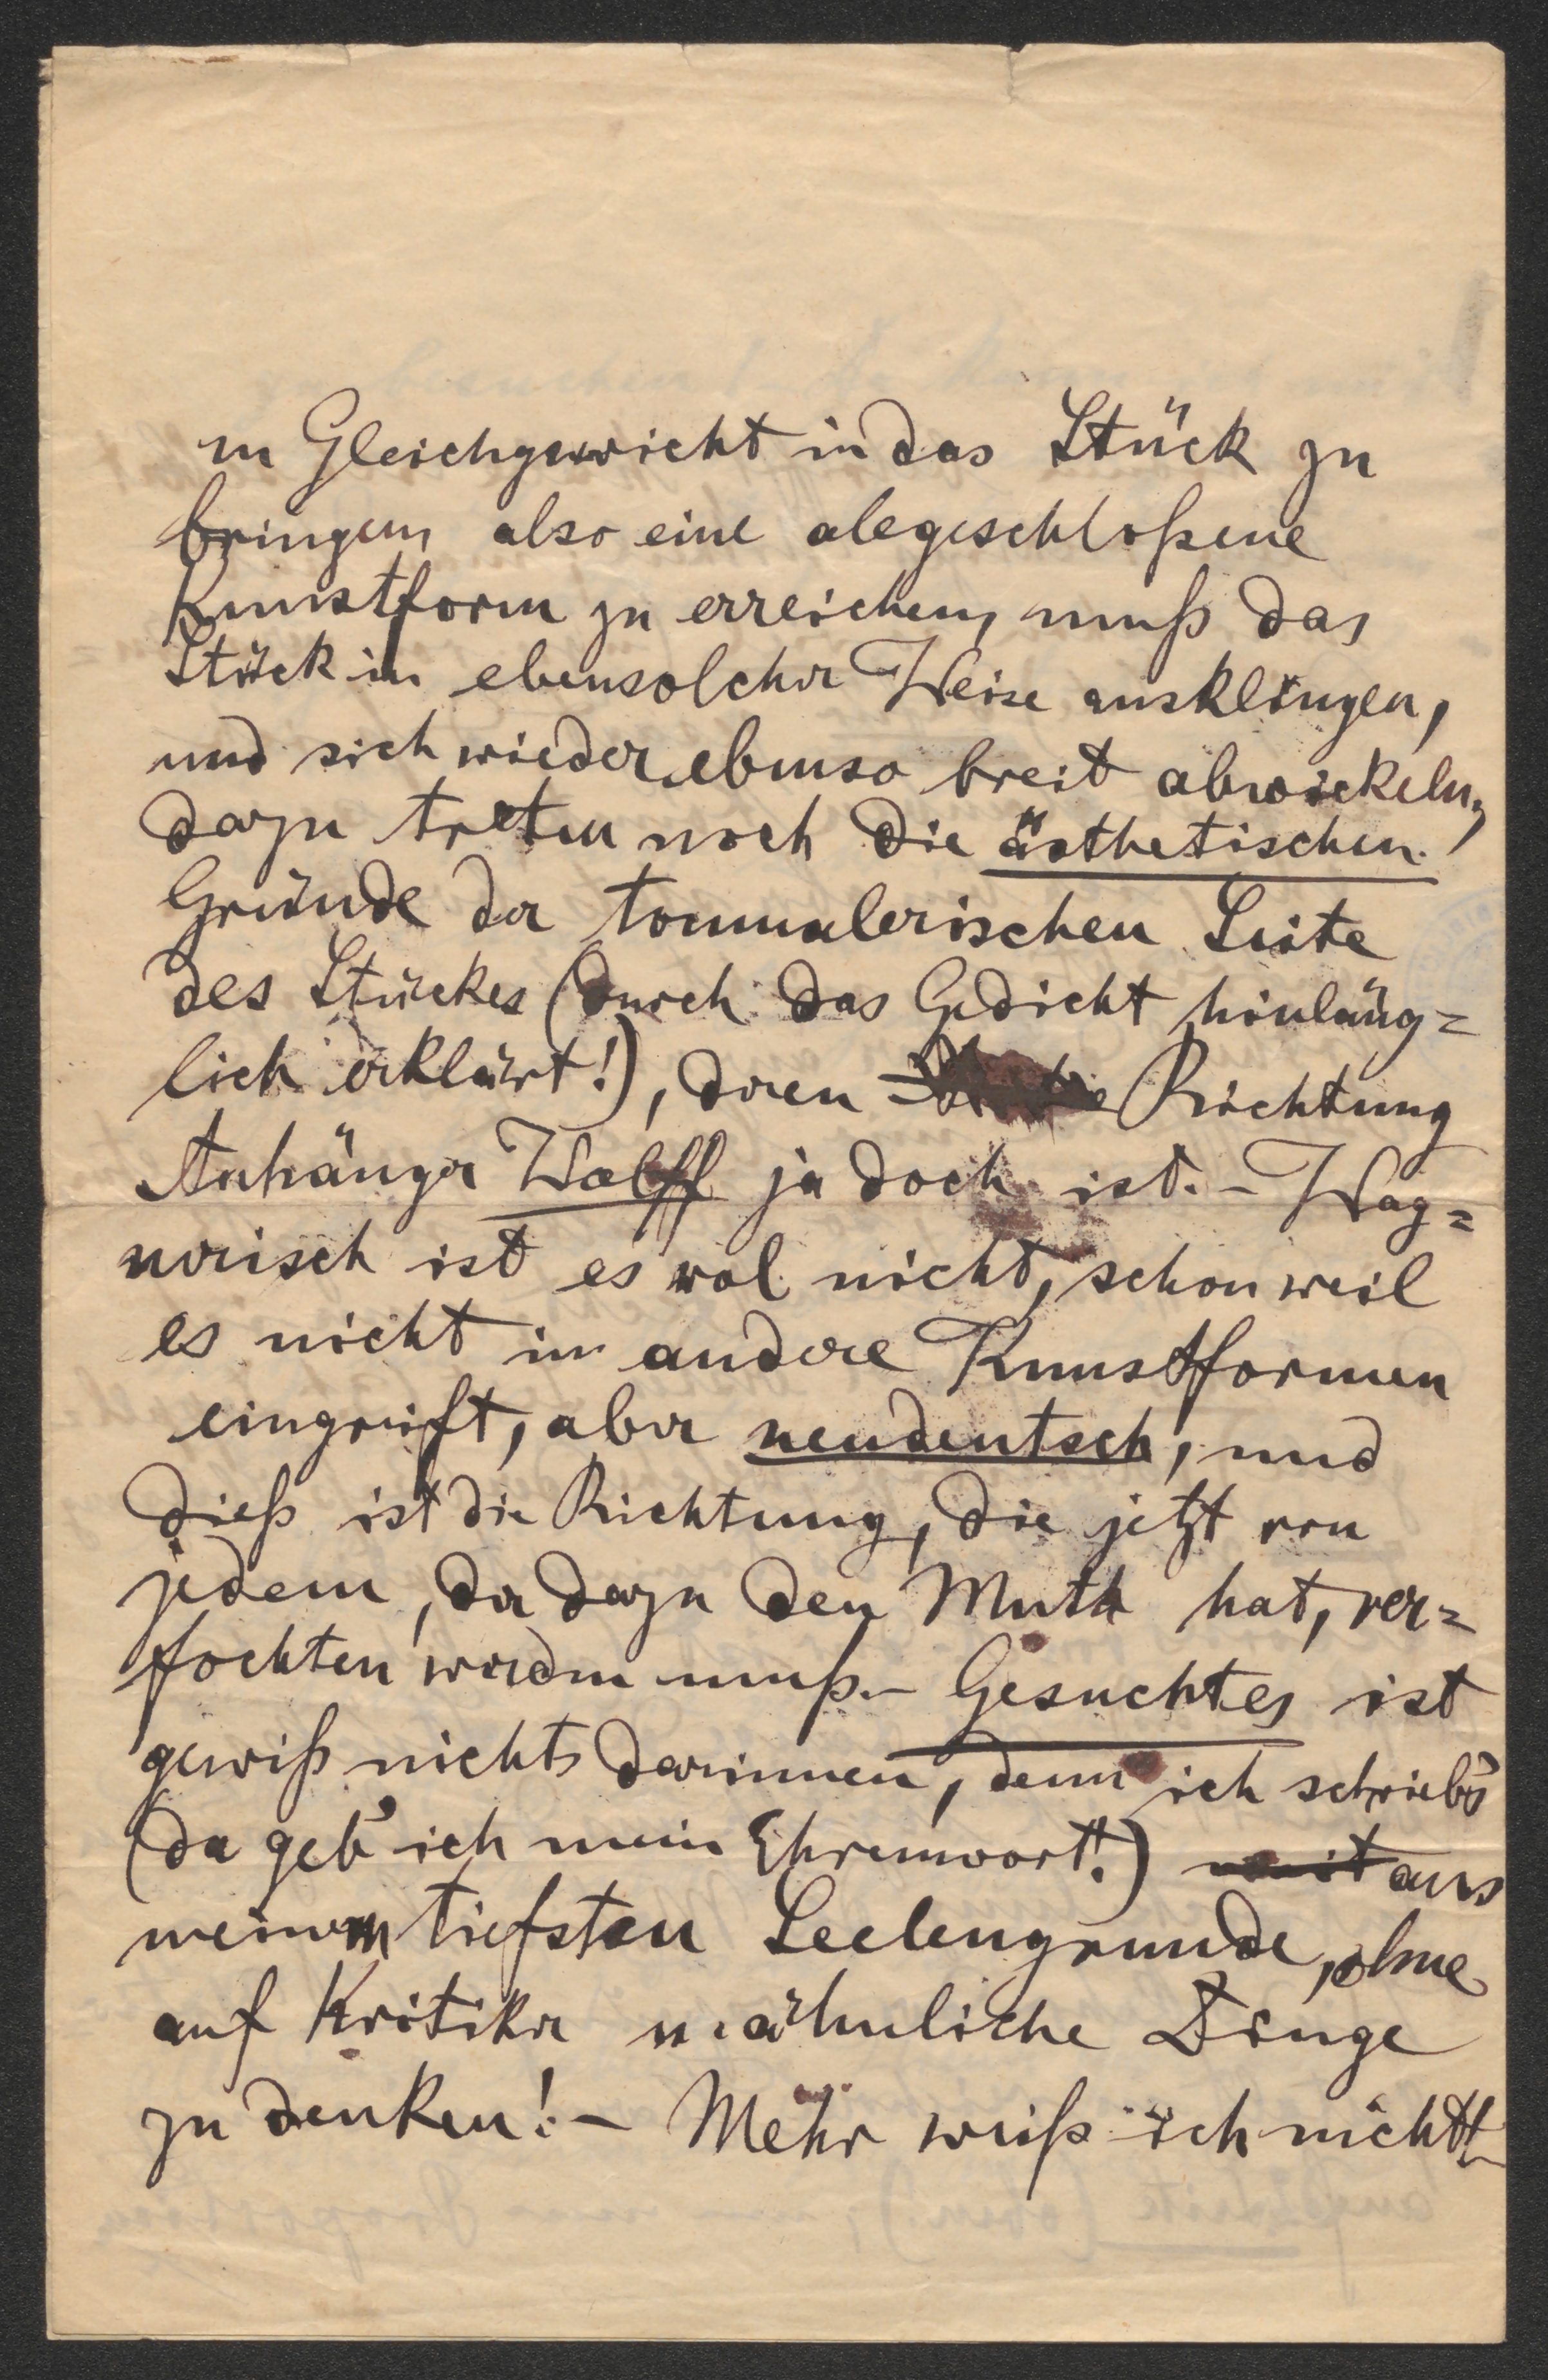 m Gleichgewicht in das Stück zu
bringen, also eine abgeschloßene
Kunstform zu erreichen, muß das
Stück in ebensolcher Weise ausklingen,
und sich wieder ebenso breit abwickeln,
dazu treten noch die ästhetischen
Gründe der tonmalerischen Seite
des Stückes (durch das Gedicht hinläng=
lich erklärt!), deren Richtung
Anhänger Wolff ja doch ist. – Wag=
nerisch ist es wol nicht, schon weil
es nicht in andere Kunstformen
eingreift, aber neudeutsch, und
dieß ist die Richtung, die jetzt von
jedem, der dazu den Muth hat, ver=
fochten werden muß. – Gesuchtes ist
gewiß nichts darinnen, denn ich schrieb's
(da geb' ich mein Ehrenwort!) mit aus
meinem tiefsten Seelengrunde, ohne
auf Kritiker u. ähnliche Dinge
zu denken! – Mehr weiß ich nicht